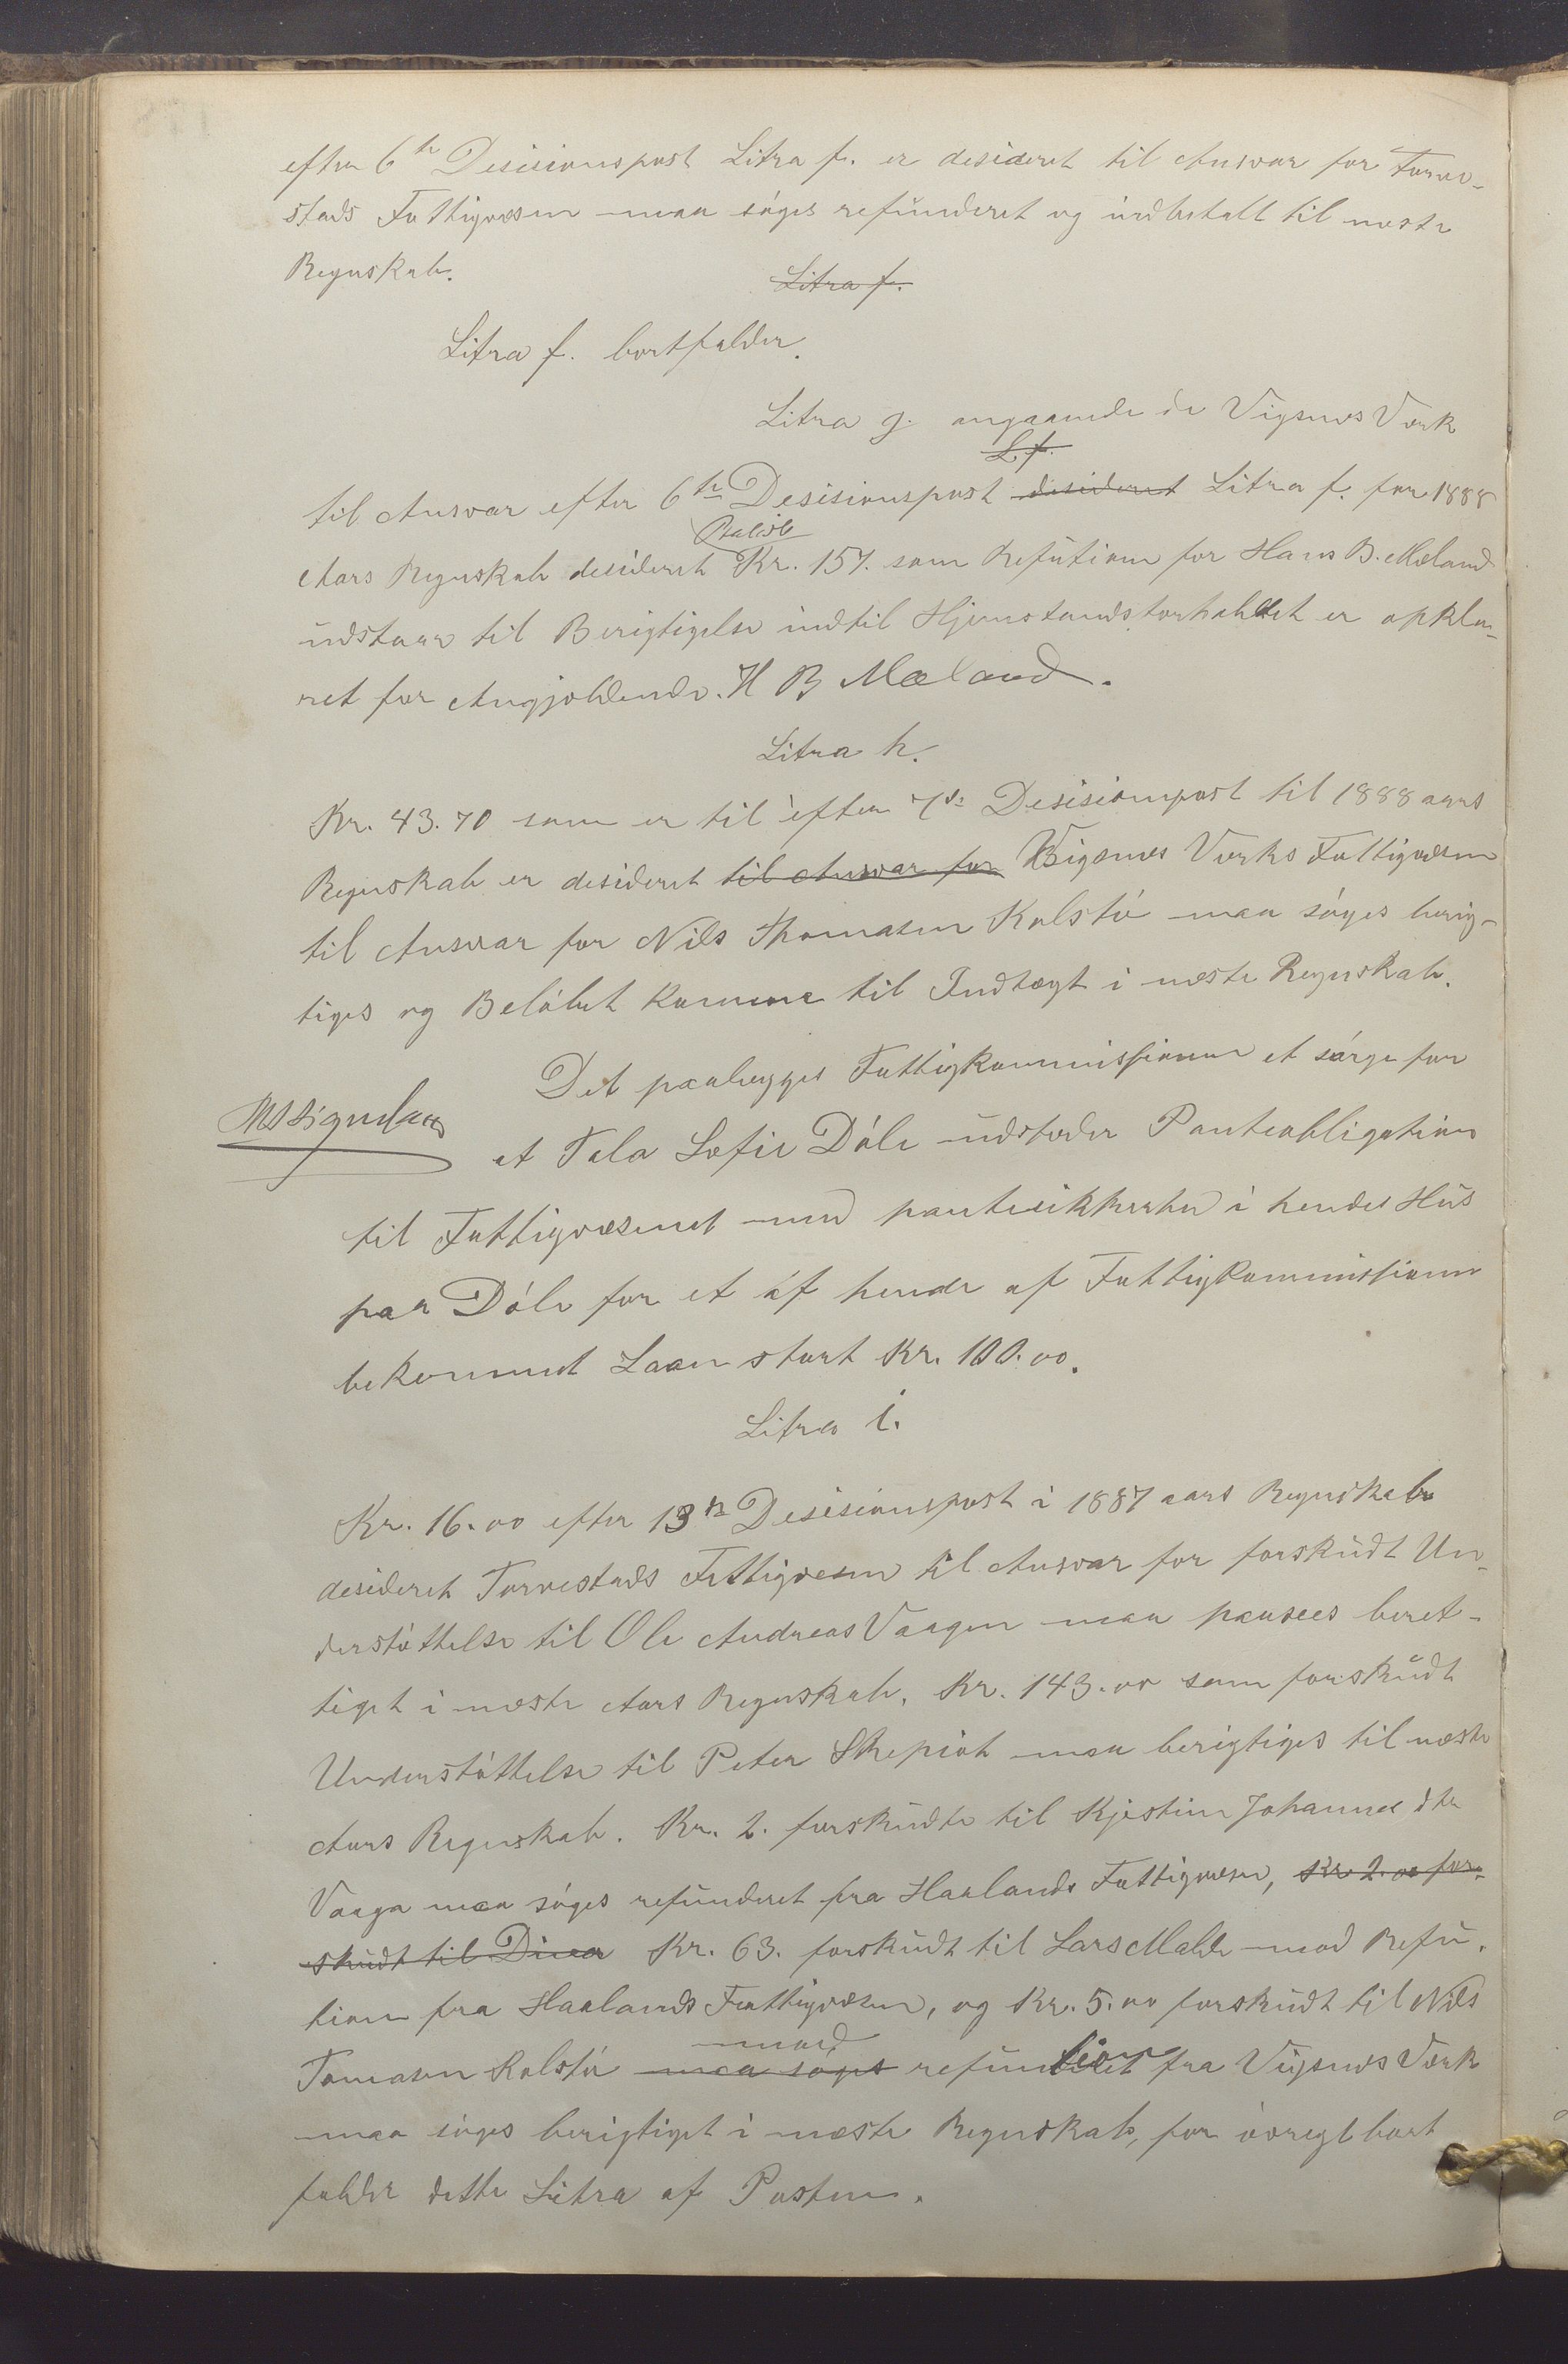 efter 6te Desisionspost Litra f. er desideret til Ansvar for Torve-
stads Fattigvæsen maa søges refunderet og indbetalt til næste
Regnskab.
Litra f.
Litra f. bortfalder.
Litra g. angaaende de Vigsnæs Værk
L. f.
til Ansvar efter 6te Desisionspost desideret Litra f. for 1888
Aars Regnskab desideret Kr. 157. som Refution for Hans B. Mæland
udstaar til Berigtigelse indtil Hjemstandsforholdet er opkla-
ret for Angjældende. H B Mæland.
Litra h.
Kr. 43.70 som er til efter 7de Desisionspost til 1888 aars
Regnskab er desideret til Ansvar for Vigsnæs Værks Fattigvæsen
til Ansvar for Nils Thomasen Kolstø maa søges berig-
tiges og Beløbet komme til Indtægt i næste Regnskab.
Det paalægges Fattigkommissionen at sørge for
at Tala Sofie Døle udsteder Panteobligation
til Fattigvæsenet med pantesikkerhed i hendes Hus
paa Døle for et af hende af Fattigkommissionen
bekommet Laan stort Kr. 100.00.
Litra i.
Kr. 16.00 efter 13de Desisionspost i 1887 aars Regnskab
desideret Torvestads Fattigvæsen til Ansvar for forskudt Un-
derstøttelse til Ole Andreas Vaagen maa paasees beret-
tiget i næste Aars Regnskab. Kr. 143.00 som forskudt
Understøttelse til Peter Skepiot maa berigtiges til næste
Aars Regnskab. Kr. 2. forskudte til Kjestine Johannes dtr
Vaaga maa søges refunderet fra Haalands Fattigvæsen, Kr 2.00 for-
skudt til Kr. 63. forskudt til Lars Malde mod Refu-
tion fra Haalands Fattigvæsen, og Kr. 5.00 forskudt til Nils
mod
Tomasen Kolstø maa søges refundtion fra Vigsnæs Værk
maa søges berigtiget i næste Regnskab, for øvregt bort
falder dette Litra af Posten.